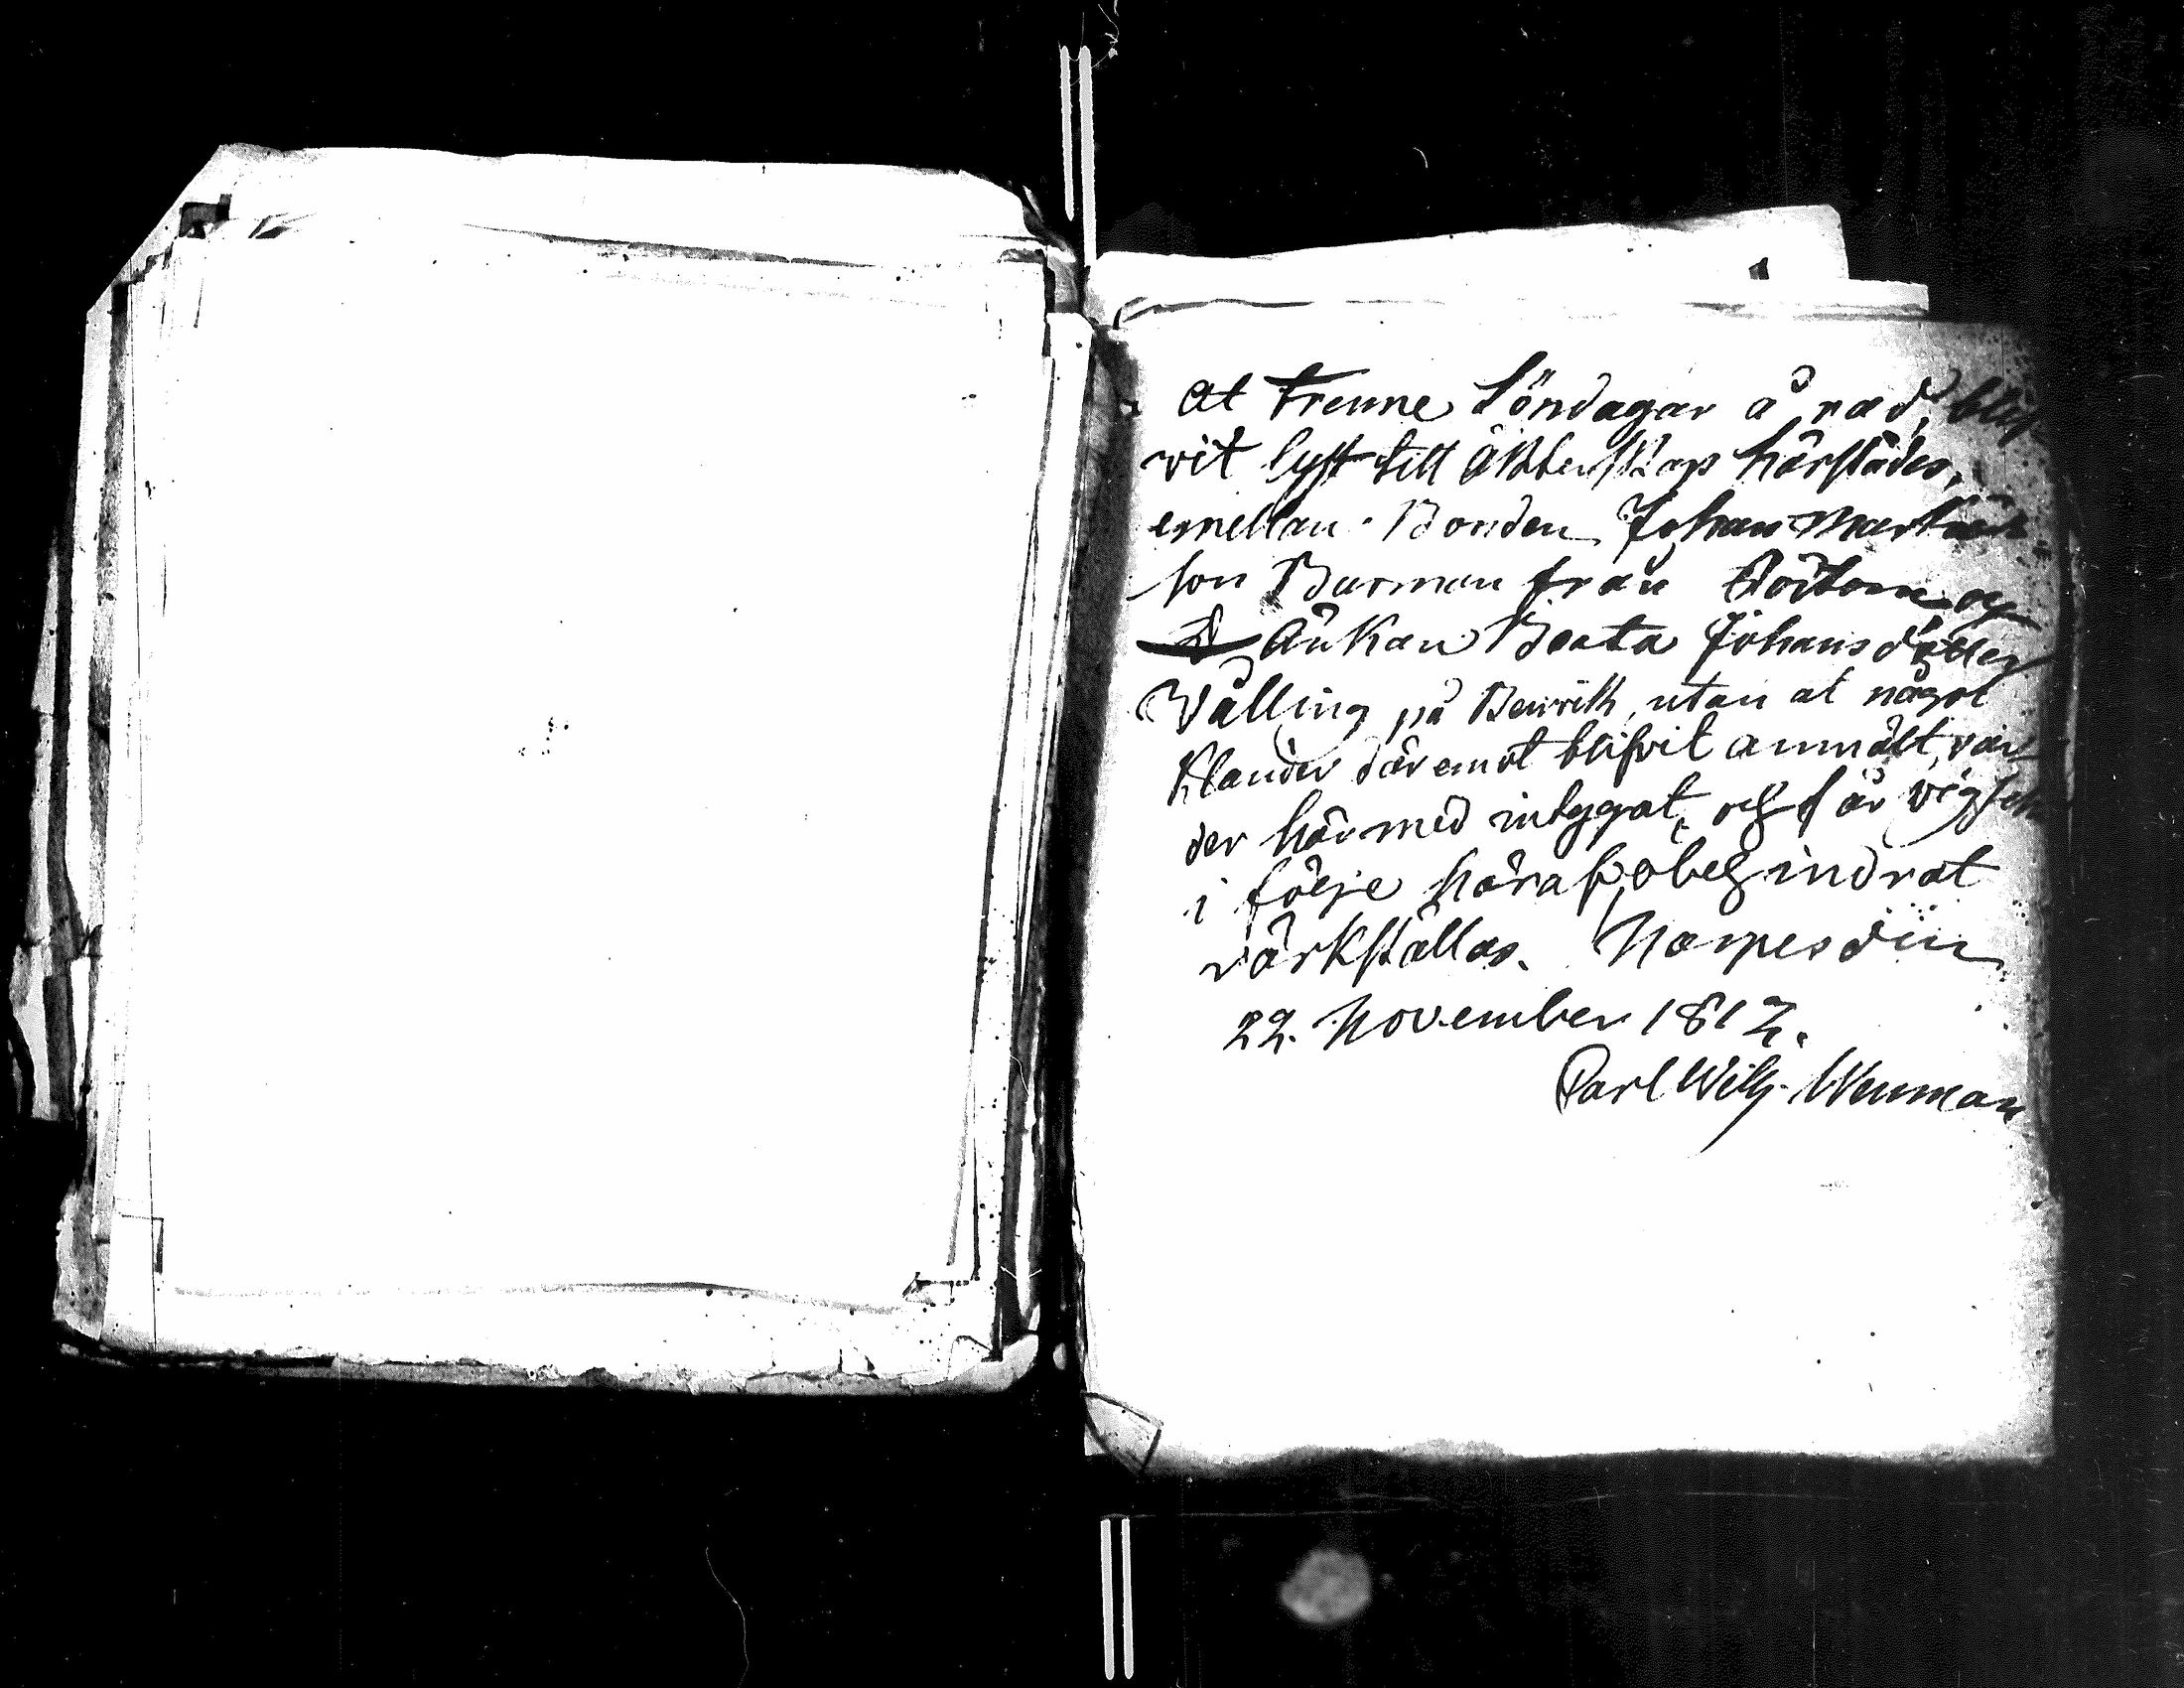 At trenne Söndagar å rad, blif-
vit lyst till äktenskap härstädes,
emellan Bonden Johan Martin
son Burman från Pörtom, och
Änkan Beata Johansdotter
Välling på Benvik, utan at något
Klander däremot blifvit anmält, var
der härmed intygat, och får vigsel
i följe häraf, obehindrat
värkställas. Närpes den
22. November 1812.
Carl Wilh. Wenman